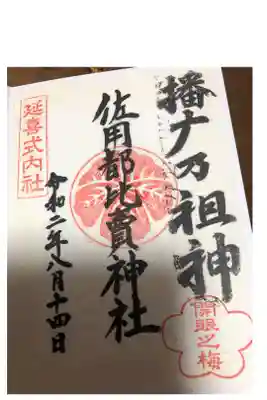 播 乃祖神
開眼之梅
佐用都比賣神社
延喜式内社
令和二年八月十四日